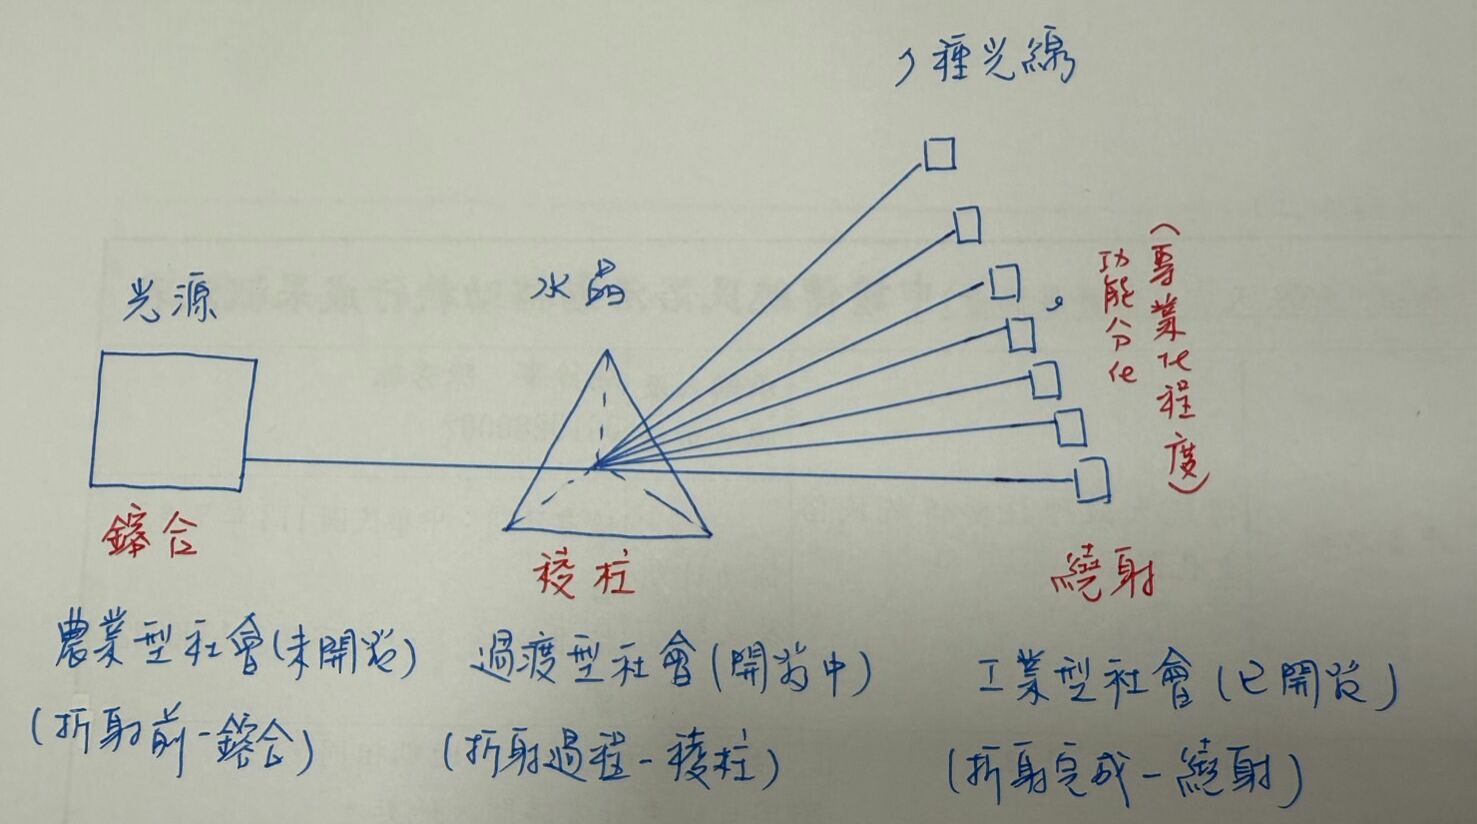 7種光線
光源
水晶
功能分化
(專業化程度)
鎔合
稜柱
繞射
農業型社會(未開發)
過渡型社會(開發中)
工業型社會(已開發)
(折射前-鎔合)
(折射過程-稜柱)
(折射完成-繞射)